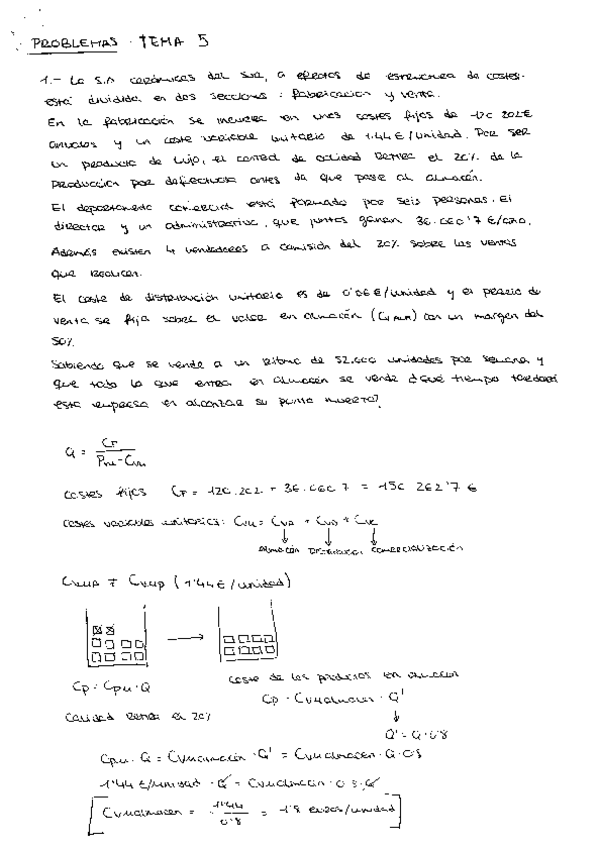 PROBLEMAS TEMA 5
1.- La S.A cerámicas del sur, a efectos de estructura de costes
está dividida en dos secciones: fabricación y venta.
En la fabricación se incurre en unos costes fijos de 120.202€
anuales y un coste variable unitario de 1'44€/unidad. Por ser
un producto de lujo, el control de calidad retira el 20% de la
producción por defectuosa antes de que pase al almacén.
El departamento comercial está formado por seis personas. El
director y un administrativo, que juntos ganan 36.060'7 €/año.
Además existen 4 vendedores a comisión del 20% sobre las ventas
que realicen.
El coste de distribución unitario es de 0'06€/unidad y el precio de
venta se fija sobre el valor en almacén con un margen del
50%.
Sabiendo que se vende a un ritmo de 52.000 unidades por semana y
que todo lo que entra en almacén se vende ¿Qué tiempo tardará
esta empresa en alcanzar su punto muerto?
Q = CF / Pvu - Cvu
costes fijos CF = 120.202 + 36.060'7 = 156 262'7 €
costes variables unitarios: Cvu = Cva + Cvd + Cvc
almacén Distribución comercialización
≠ (1'44€/unidad)
coste de los productos en almacén
Cp = Cpu · Q
Cp = Cvualmacen · Q'
Calidad retira el 20%
Q' = Q·0'8
Cpu · Q = Cvualmacén · Q' = Cvualmacen · Q·0'8
1'44 €/unidad · Q = Cvualmacen · 0'8 · Q
Cvualmacen = 1'44 / 0'8 = 1'8 euros/unidad